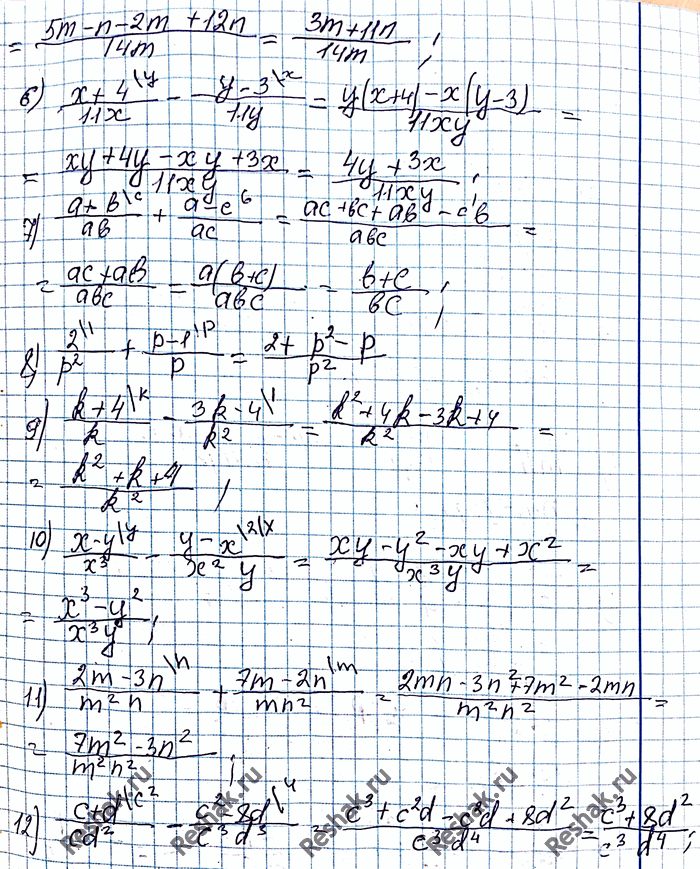 = (5m-n-2m+12n)/14m = (3m+11n)/14m ;
6) (x+4\y)/11x - (y-3\x)/11y = (y(x+4)-x(y-3))/11xy =
= (xy+4y-xy+3x)/11xy = (4y+3x)/11xy ;
7) (a+b\c)/ab + (a-c\b)/ac = (ac+bc+ab-cb)/abc =
= (ac+ab)/abc = a(b+c)/abc = (b+c)/bc ;
8) 2\1/p² + (p-1\p)/p = (2+p²-p)/p²
9) (k+4\k)/k - (3k-4\1)/k² = (k²+4k-3k+4)/k² =
= (k²+k+4)/k² ;
10) (x-y\y)/x³ - (y-x\x)/x²y = (xy-y²-xy+x²)/x³y =
= (x³-y²)/x³y ;
11) (2m-3n\n)/m²n + (7m-2n\m)/mn² = (2mn-3n²+7m²-2mn)/m²n² =
= (7m²-3n²)/m²n² ;
12) (c+d\c²)/cd² - (c²-8d\)/c³d³ = (c³+c²d-c²d+8d²)/c³d⁴ = (c³+8d²)/c³d⁴ ;
Reshak.ru Reshak.ru Reshak.ru Reshak.ru Reshak.ru